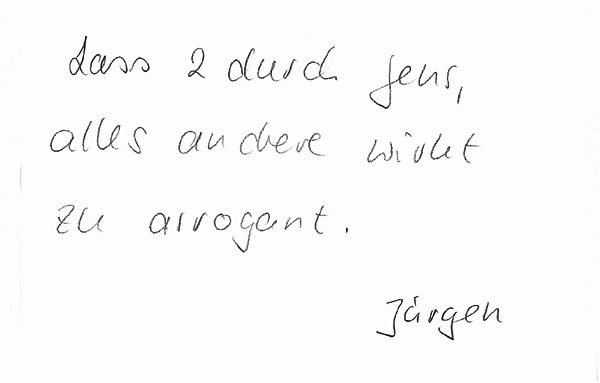 Lass 2 durch Jens,
alles andere wirkt
zu arrogant.
Jürgen